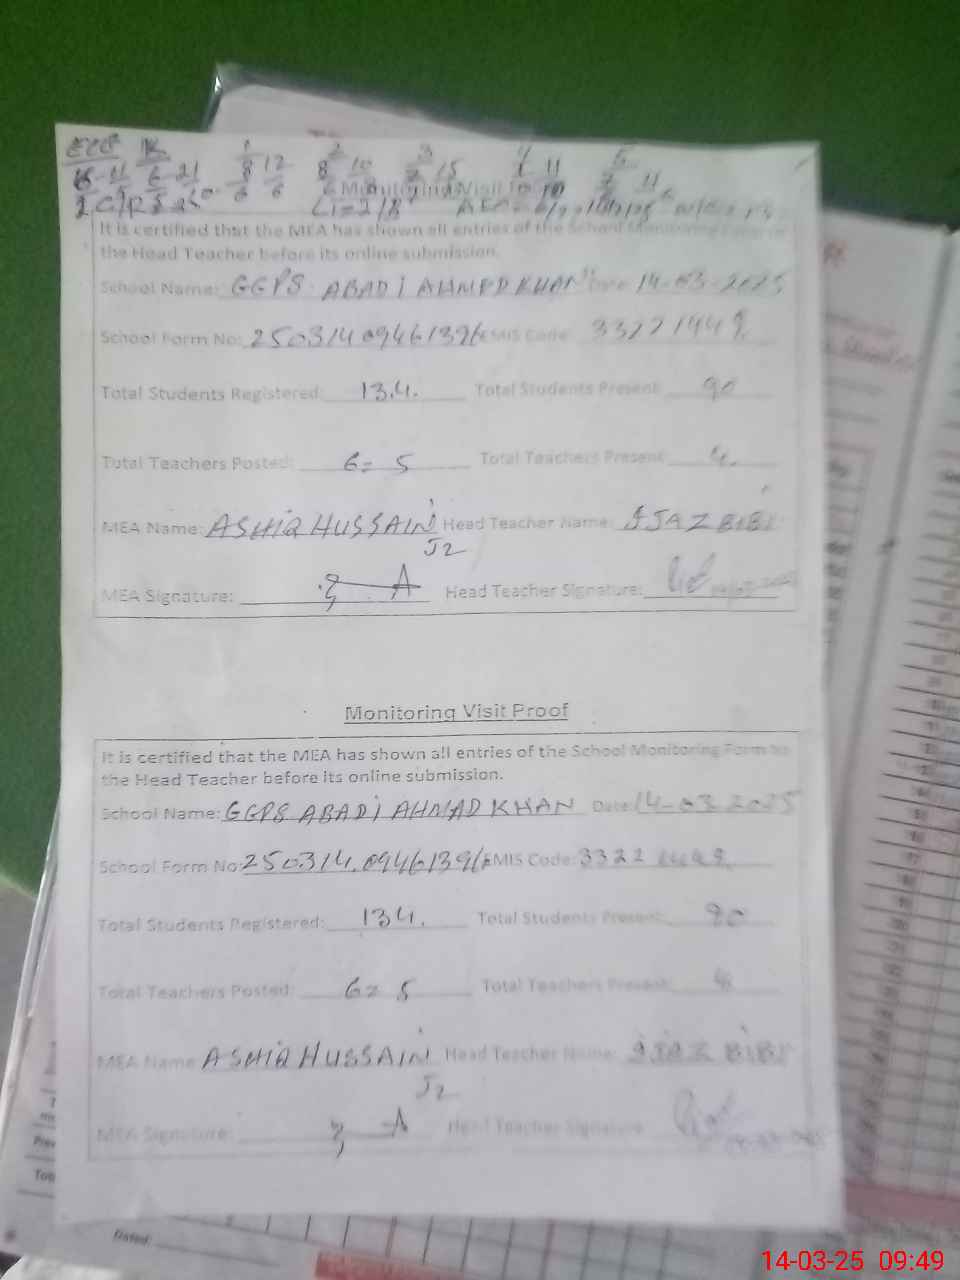 ECE K 1 2 3 4 5
Monitoring Visit Proof
It is certified that the MEA has shown all entries of the School Monitoring Form to
the Head Teacher before its online submission.
School Name: GGPS ABADI AHMED KHAN Date: 14-03-2025
School Form No: 25031409461396 EMIS Code: 33221449
Total Students Registered: 134. Total Students Present: 90
Total Teachers Posted: 6= 5 Total Teachers Present: 4.
MEA Name: ASHIQ HUSSAIN Head Teacher Name: IJAZ BIBI
J2
MEA Signature: Head Teacher Signature:
Monitoring Visit Proof
It is certified that the MEA has shown all entries of the School Monitoring Form to
the Head Teacher before its online submission.
School Name: GGPS ABADI AHMAD KHAN Date: 14-03-2025
School Form No: 250314.09461396 EMIS Code: 33221449.
Total Students Registered: 134. Total Students Present: 90
Total Teachers Posted: 6= 5 Total Teachers Present: 4
MEA Name: ASHIQ HUSSAIN Head Teacher Name: IJAZ BIBI
J2
MEA Signature: Head Teacher Signature:
Dated:
14-03-25 09:49